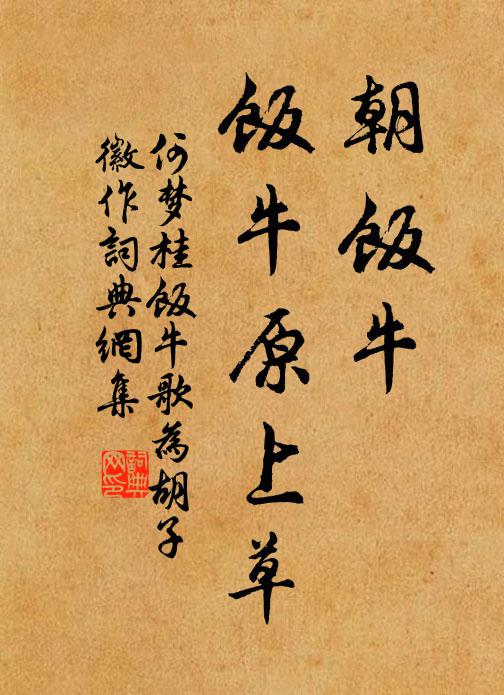 朝飯牛
飯牛原上草
何梦桂飯牛歌為胡子
徽作詞典網集
詞典
网印